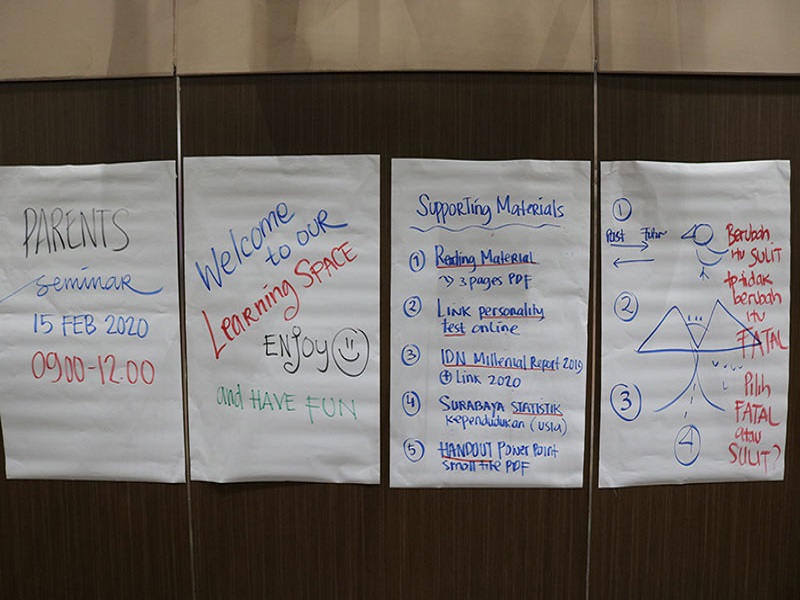 PARENTS
seminar
15 FEB 2020
09.00-12.00
Welcome
to our
Learning SPACE
ENJOY
and HAVE FUN
Supporting Materials
1 Reading Material
3 pages PDF
2 Link personality
test online
3 IDN Millenial Report 2019
+ Link 2020
4 SURABAYA STATISTIK
kependudukan (usia)
5 HANDOUT Power Point
small file PDF
1
Past Future
2
3
4
Berubah
itu SULIT
tp tidak
berubah
itu
FATAL
Pilih
FATAL
atau
SULIT?